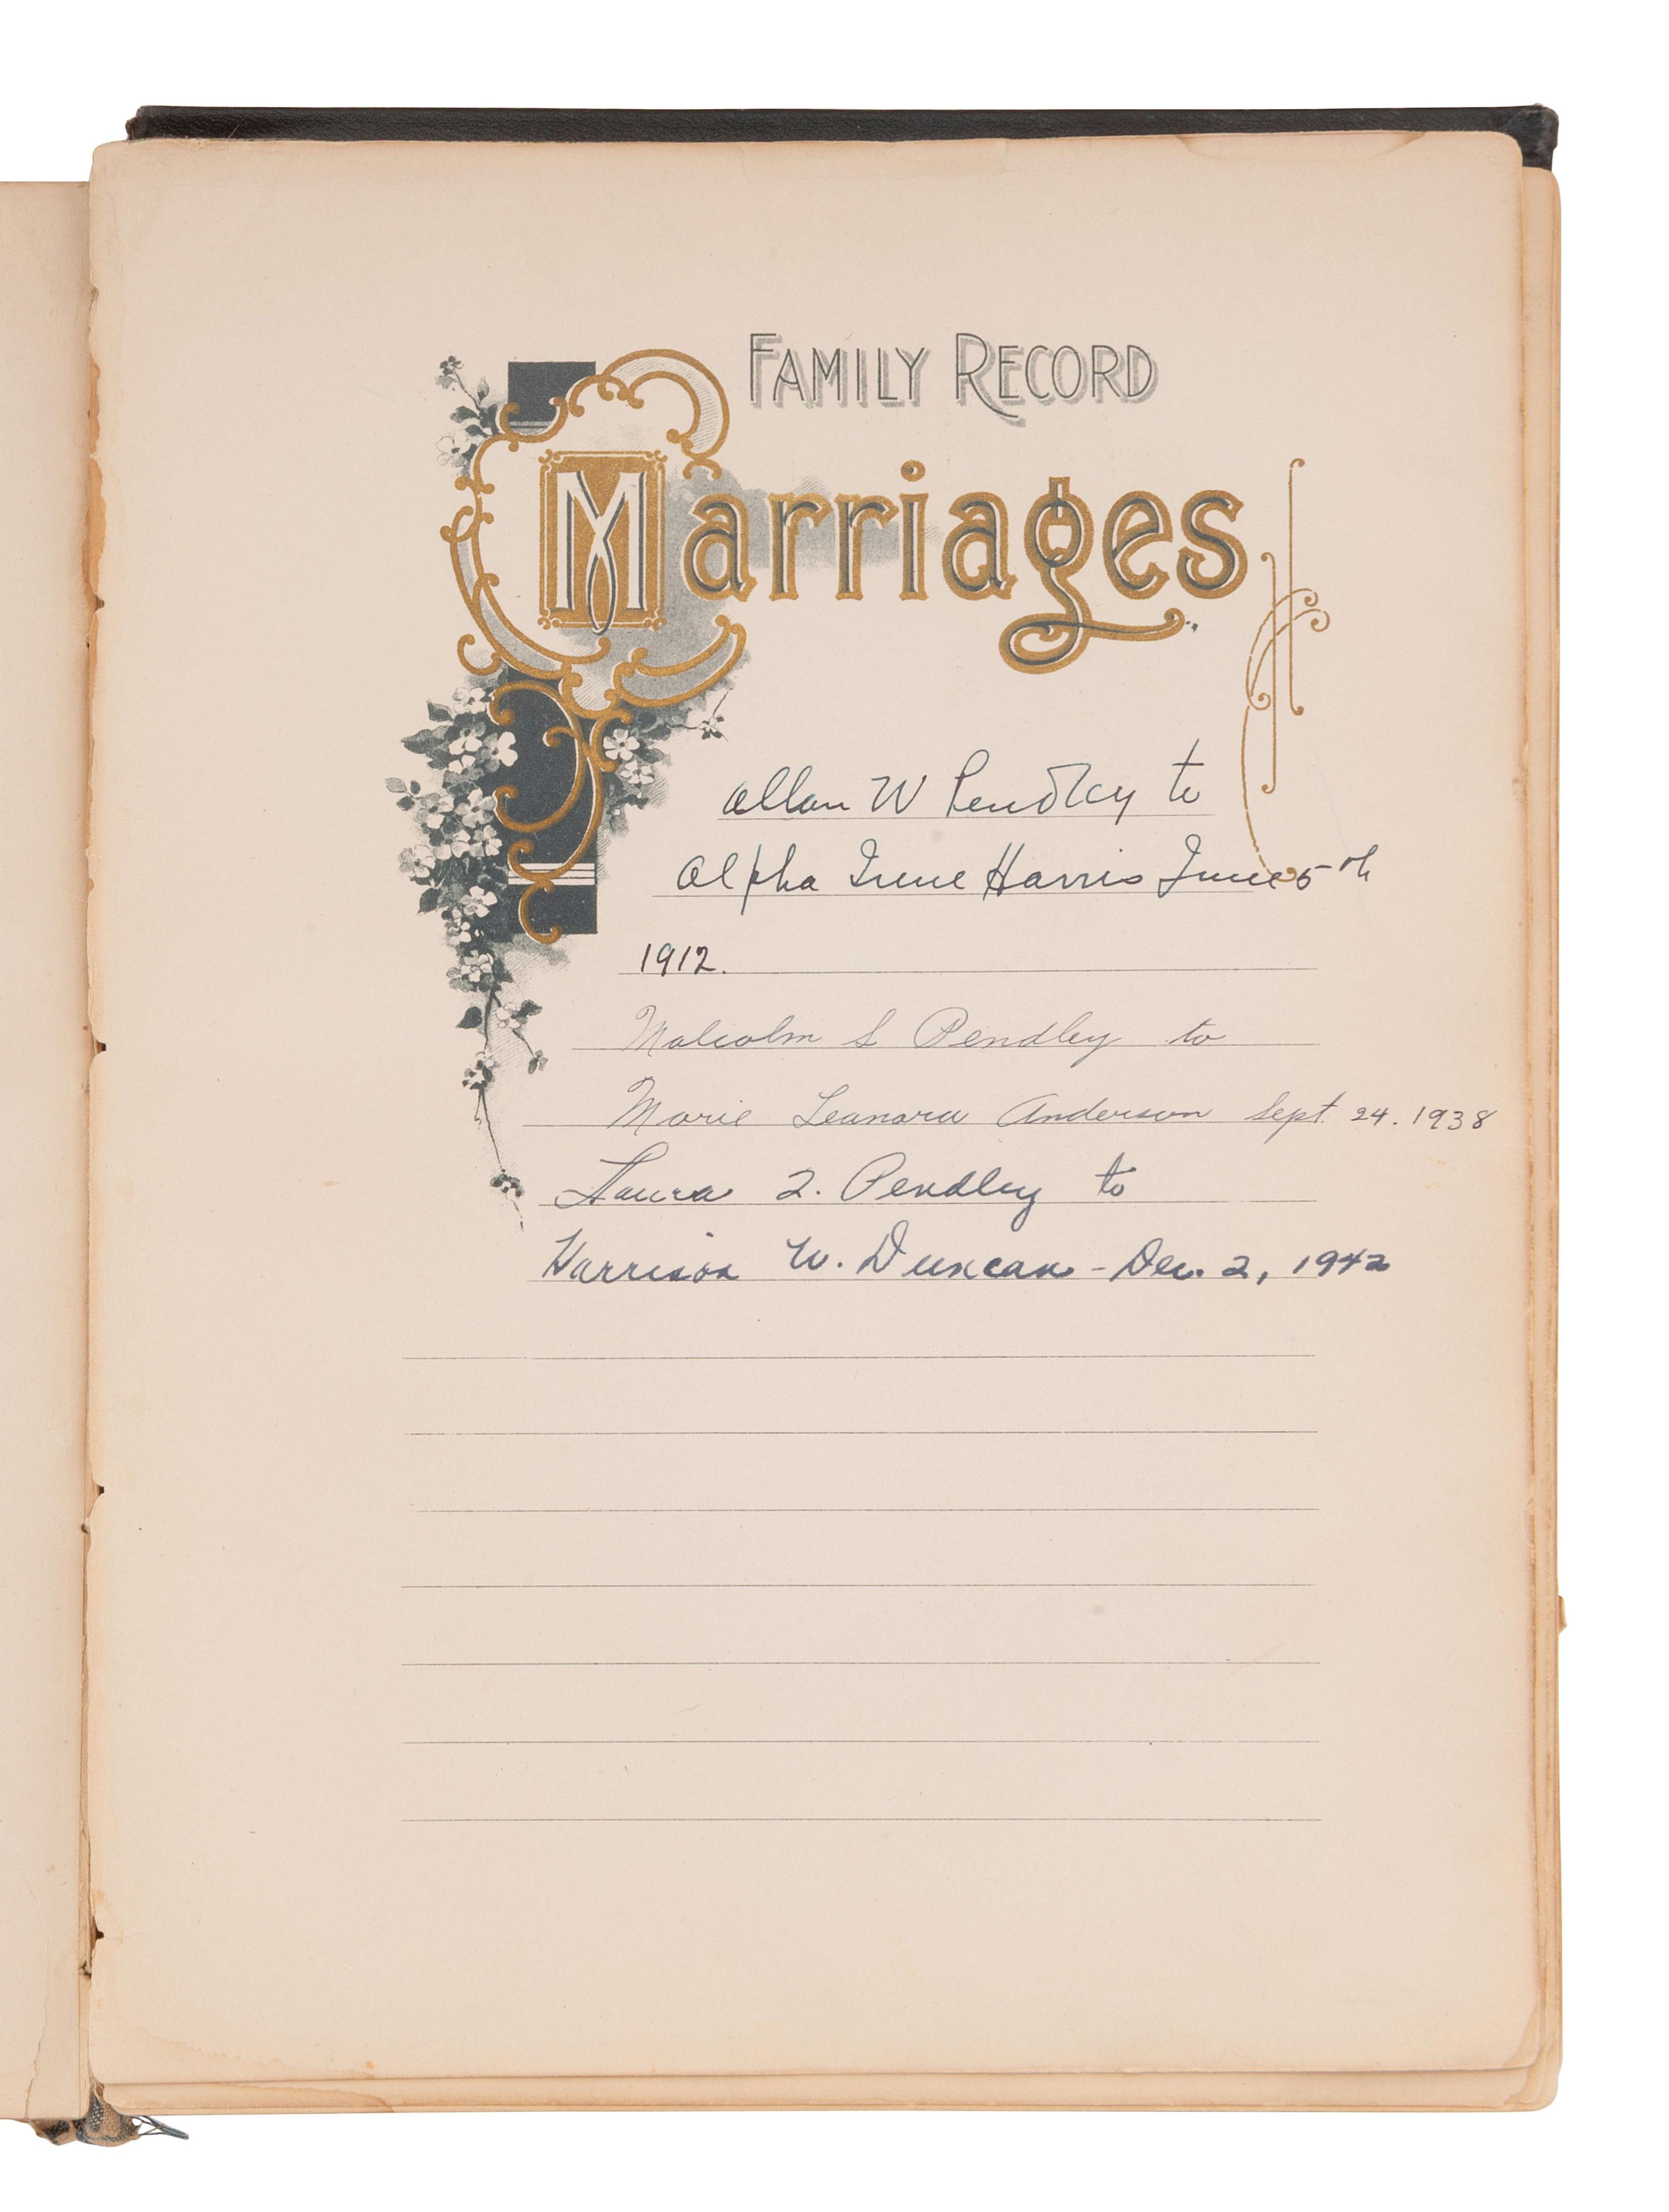 FAMILY RECORD
Marriages
Allan W Pendley to
Alpha Irene Harris June 5th
1912.
Malcolm S Pendley to
Marie Leanora Anderson Sept. 24. 1938
Laura I. Pendley to
Harrison W. Duncan - Dec. 2, 1942